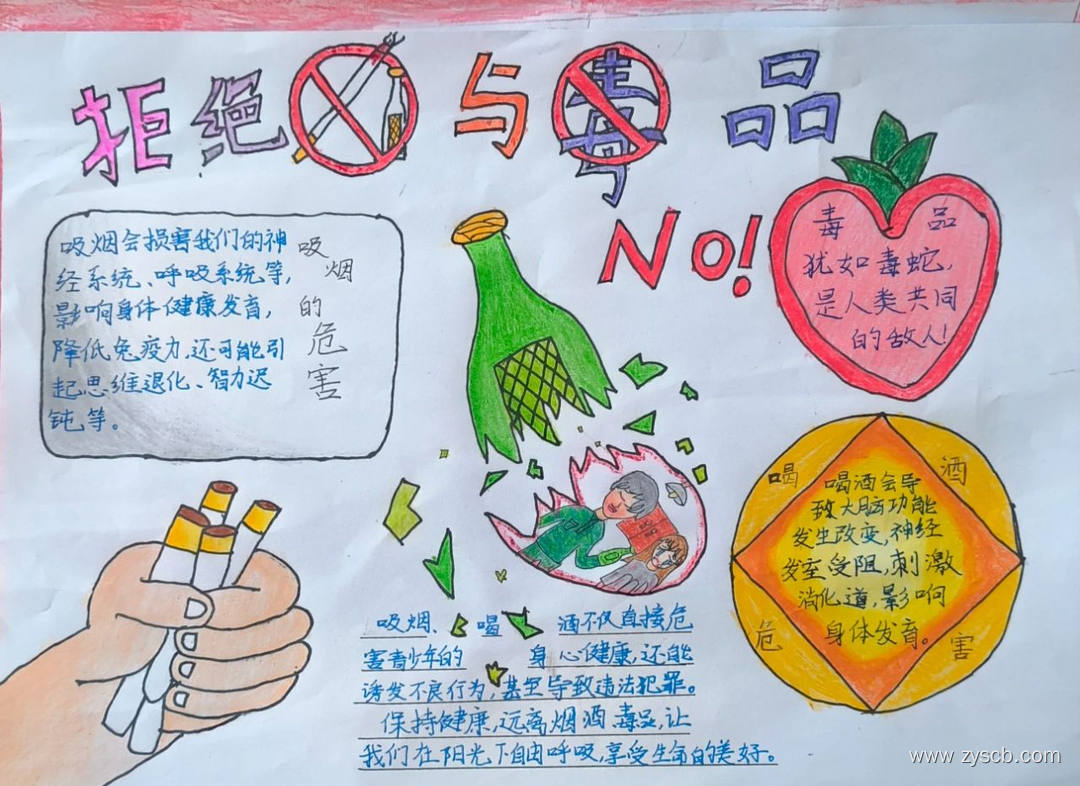 拒绝与毒品
No!
吸烟会损害我们的神
经系统、呼吸系统等,
影响身体健康发育,
降低免疫力,还可能引
起思维退化、智力迟
钝等。
吸烟的危害
毒品
犹如毒蛇,
是人类共同
的敌人!
喝酒危害
喝酒会导
致大脑功能
发生改变,神经
发室受阻,刺激
消化道,影响
身体发育。
吸烟、喝酒不仅直接危
害青少年的身心健康,还能
诱发不良行为,甚至导致违法犯罪。
保持健康,远离烟酒毒品,让
我们在阳光下自由呼吸,享受生命的美好。
www.zyscb.com